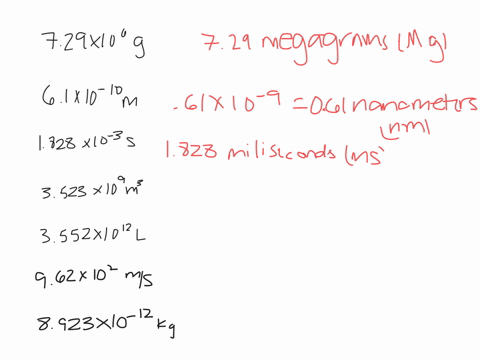 7.29×10⁶ g 7.29 megagrams (Mg)
6.1×10⁻¹⁰ m .61×10⁻⁹ = 0.61 nanometers
(nm)
1.828×10⁻³ s 1.828 miliseconds (ms)
3.523×10⁹ m³
3.552×10¹² L
9.62×10² m/s
8.923×10⁻¹² kg